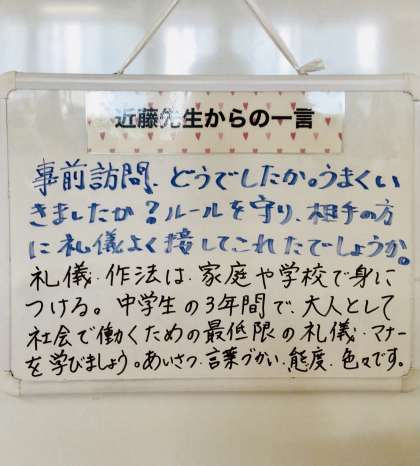 近藤先生からの一言
事前訪問、どうでしたか。うまくい
きましたか？ルールを守り、相手の方
に礼儀よく接してこれたでしょうか。
礼儀・作法は、家庭や学校で身に
つける。中学生の3年間で、大人として
社会で働くための最低限の礼儀・マナー
を学びましょう。あいさつ、言葉づかい、態度、色々です。